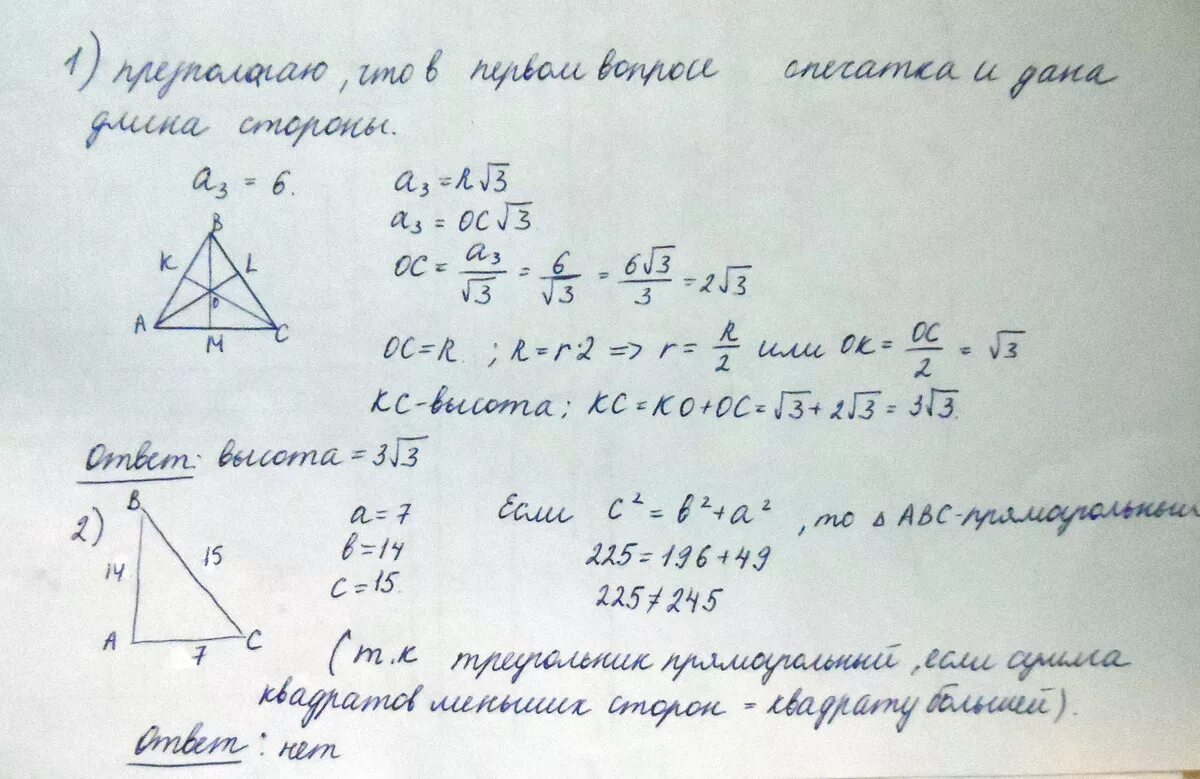 1) предполагаю, что в первом вопросе опечатка и дана
длина стороны.
a₃ = 6.
a₃ = R√3
a₃ = OC√3
B
K
L
O
A
M
C
OC = a₃/√3 = 6/√3 = 6√3/3 = 2√3
OC = R ; R = r·2 => r = R/2 или OK = OC/2 = √3
KC-высота ; KC = KO + OC = √3 + 2√3 = 3√3.
Ответ: высота = 3√3
2)
B
14
15
A
7
C
a = 7
в = 14
c = 15.
Если c² = в² + a² , то △ ABC-прямоугольный
225 = 196 + 49
225 ≠ 245
(т.к треугольник прямоугольный, если сумма
квадратов меньших сторон = квадрату большей).
Ответ: нет